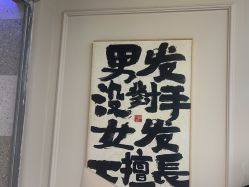 男发
没對手
女发長
擅